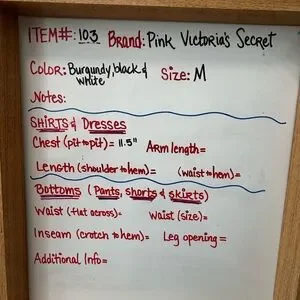 ITEM#: 103 Brand: Pink Victoria's Secret
Color: Burgundy, black & white Size: M
Notes:
SHIRTS & DRESSES
Chest (pit to pit)= 11.5" Arm length=
Length (shoulder to hem)= (waist to hem)=
Bottoms (Pants, shorts & skirts)
Waist (flat across)= Waist (size)=
Inseam (crotch to hem)= Leg opening=
Additional Info=